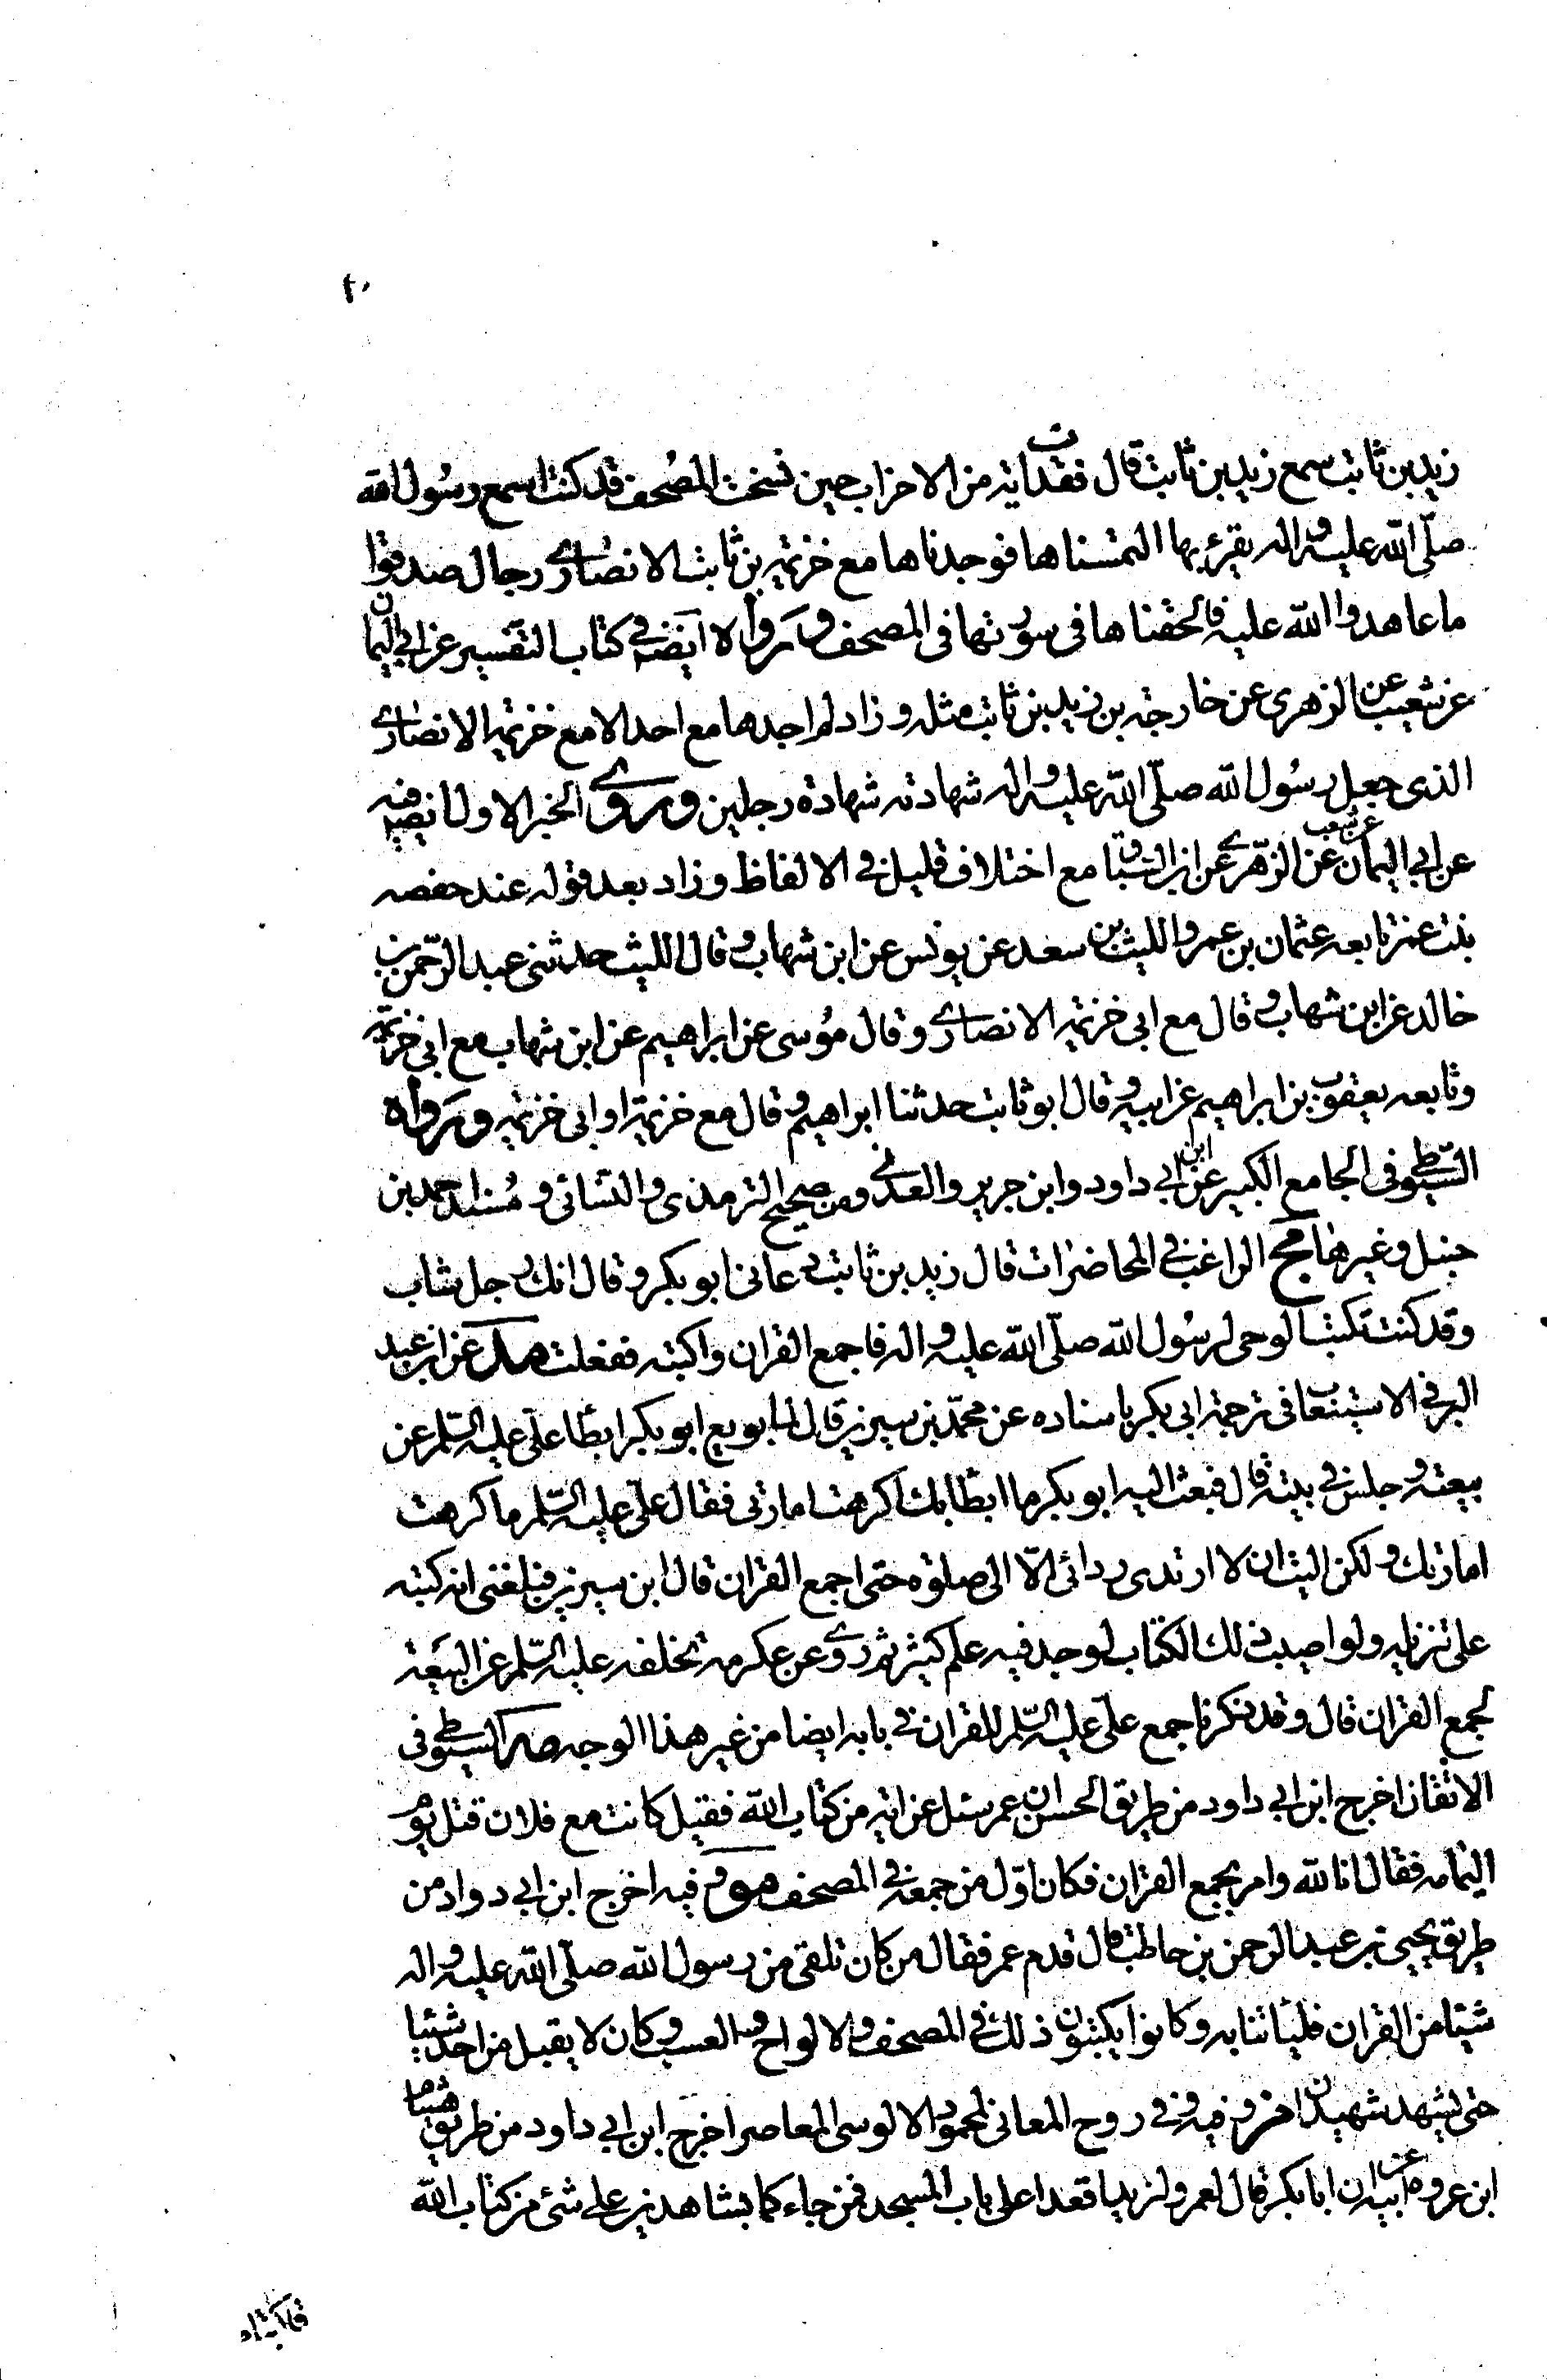 ٢٠
زيد بن ثابت سمع زيد بن ثابت قال فقدت اية من الاحزاب حين نسخت المصحف قد كنت اسمع رسول الله
صلّى الله عليه واله يقرء بها التمسناها فوجدناها مع خزيمة بن ثابت الانصارى رجال صدقوا
ما عاهدوا الله عليه فالحقناها في سورتها في المصحف ورواه ايضا في كتاب التفسير عن ابي اليمان
عن شعيب عن الزهرى عن خارجة بن زيد بن ثابت مثله وزاد لم اجدها مع احد الا مع خزيمة الانصارى
الذى جعل رسول الله صلّى الله عليه واله شهادته شهادة رجلين وروى الخبر الاول ايضا فيه
عن ابي اليمان عن شعيب عن الزهرى عن ابن السباق مع اختلاف قليل في الالفاظ وزاد بعد قوله عند حفصه
بنت عمر تابعه عثمان بن عمر والليث بن سعد عن يونس عن ابن شهاب وقال الليث حدثنى عبد الرحمن بن
خالد عن ابن شهاب وقال مع ابى خزيمة الانصارى وقال موسى عن ابراهيم عن ابن شهاب مع ابى خزيمة
وتابعه يعقوب بن ابراهيم عن ابيه وقال ابو ثابت حدثنا ابراهيم وقال مع خزيمة او ابى خزيمة ورواه
السيوطى في الجامع الكبير عن ابن ابي داود وابن جرير والعدنى ومن صحيح الترمذى والنسائى ومسند احمد بن
حنبل وغيرها مج الراغب في المحاضرات قال زيد بن ثابت دعانى ابو بكر وقال انك رجل شاب
وقد كنت تكتب الوحى لرسول الله صلّى الله عليه واله فاجمع القران واكتبه ففعلت مد عن ابن عبد
البر في الاستيعاب في ترجمة ابى بكر باسناده عن محمد بن سيرين قال لما بويع ابو بكر ابطأ علىّ عليه السّلم عن
بيعته وجلس في بيته قال فبعث اليه ابو بكر ما ابطأ بك اكرهت امارتى فقال علىّ عليه السّلم ما كرهت
امارتك ولكن اليت ان لا ارتدى ردائى الّا الى صلوة حتى اجمع القران قال ابن سيرين فبلغنى انه كتبه
على تنزيله ولو اصيب ذلك الكتاب لوجد فيه علم كثير ثم روى عن عكرمه تخلفه عليه السّلم عن البيعة
لجمع القران قال وقد ذكرنا جمع علىّ عليه السّلم للقران في بابه ايضا من غير هذا الوجه مه السيوطى فى
الاتقان اخرج ابن ابي داود من طريق الحسن ان عمر سئل عن اية من كتاب الله فقيل كانت مع فلان قتل يوم
اليمامه فقال انا لله وامر بجمع القران فكان اوّل من جمعه في المصحف مو وفيه اخرج ابن ابي دواد من
طريق يحيى بن عبد الرحمن بن حاطب قال قدم عمر فقال من كان تلقى من رسول الله صلّى الله عليه واله
شيئا من القران فليأتنا به وكانوا يكتبون ذلك في المصحف والالواح والعسب وكان لا يقبل من احد شيئا
حتى يشهد شهيدان مز وفيه وفي روح المعانى لمحمود الالوسى المعاصر اخرج ابن ابي داود من طريق هشام
ابن عروه عن ابيه ان ابا بكر قال لعمر ولزيد اقعدا على باب المسجد فمن جاءكما بشاهدين على شئ من كتاب الله
فاكتباه